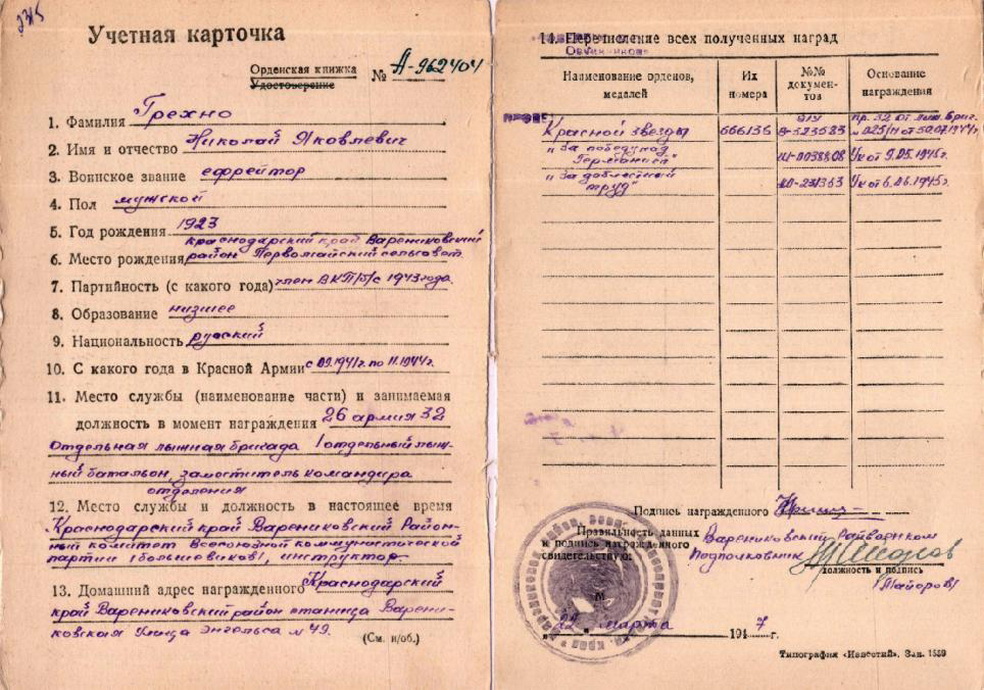 2315
Учетная карточка
Орденская книжка
Удостоверение
№ А-962404
1. Фамилия Грехно
2. Имя и отчество Николай Яковлевич
3. Воинское звание ефрейтор
4. Пол мужской
5. Год рождения 1923
Краснодарский край Варениковский
6. Место рождения район Первомайский сельсовет
7. Партийность (с какого года) член ВКП/б/с 1943 года.
8. Образование низшее
9. Национальность русский
10. С какого года в Красной Армии с 09.1941г. по 11.1944г.
11. Место службы (наименование части) и занимаемая
должность в момент награждения 26 армия 32
Отдельная лыжная бригада 1 отдельный лыж-
ный батальон, заместитель командира
отделения
12. Место службы и должность в настоящее время
Краснодарский край Варениковский Район-
ный комитет Всесоюзной коммунистической
партии (большевиков), инструктор
13. Домашний адрес награжденного Краснодарский
край Варениковский район станица Варени-
ковская Улица Энгельса № 49.
(См. н/об.)
14. Перечисление всех полученных наград
Наименование орденов, медалей
Их номера
№№ документов
Основание награждения
Красной звезды 666136 323583 пр. 32 от. лыж. бриг. № 025/н от 30.07.1944г.
"За победу над Германией" Ш-0038808 Ук от 9.05.1945г.
"За доблестный труд" 231363 Ук от 6.06.1945г.
Подпись награжденного
Правильность данных
и подпись награжденного
свидетельствую:
Варениковский Райвоенком
Подполковник
должность и подпись
/Майоров/
М
"22" марта 1947 г.
Типография «Известий». Зак. 1559